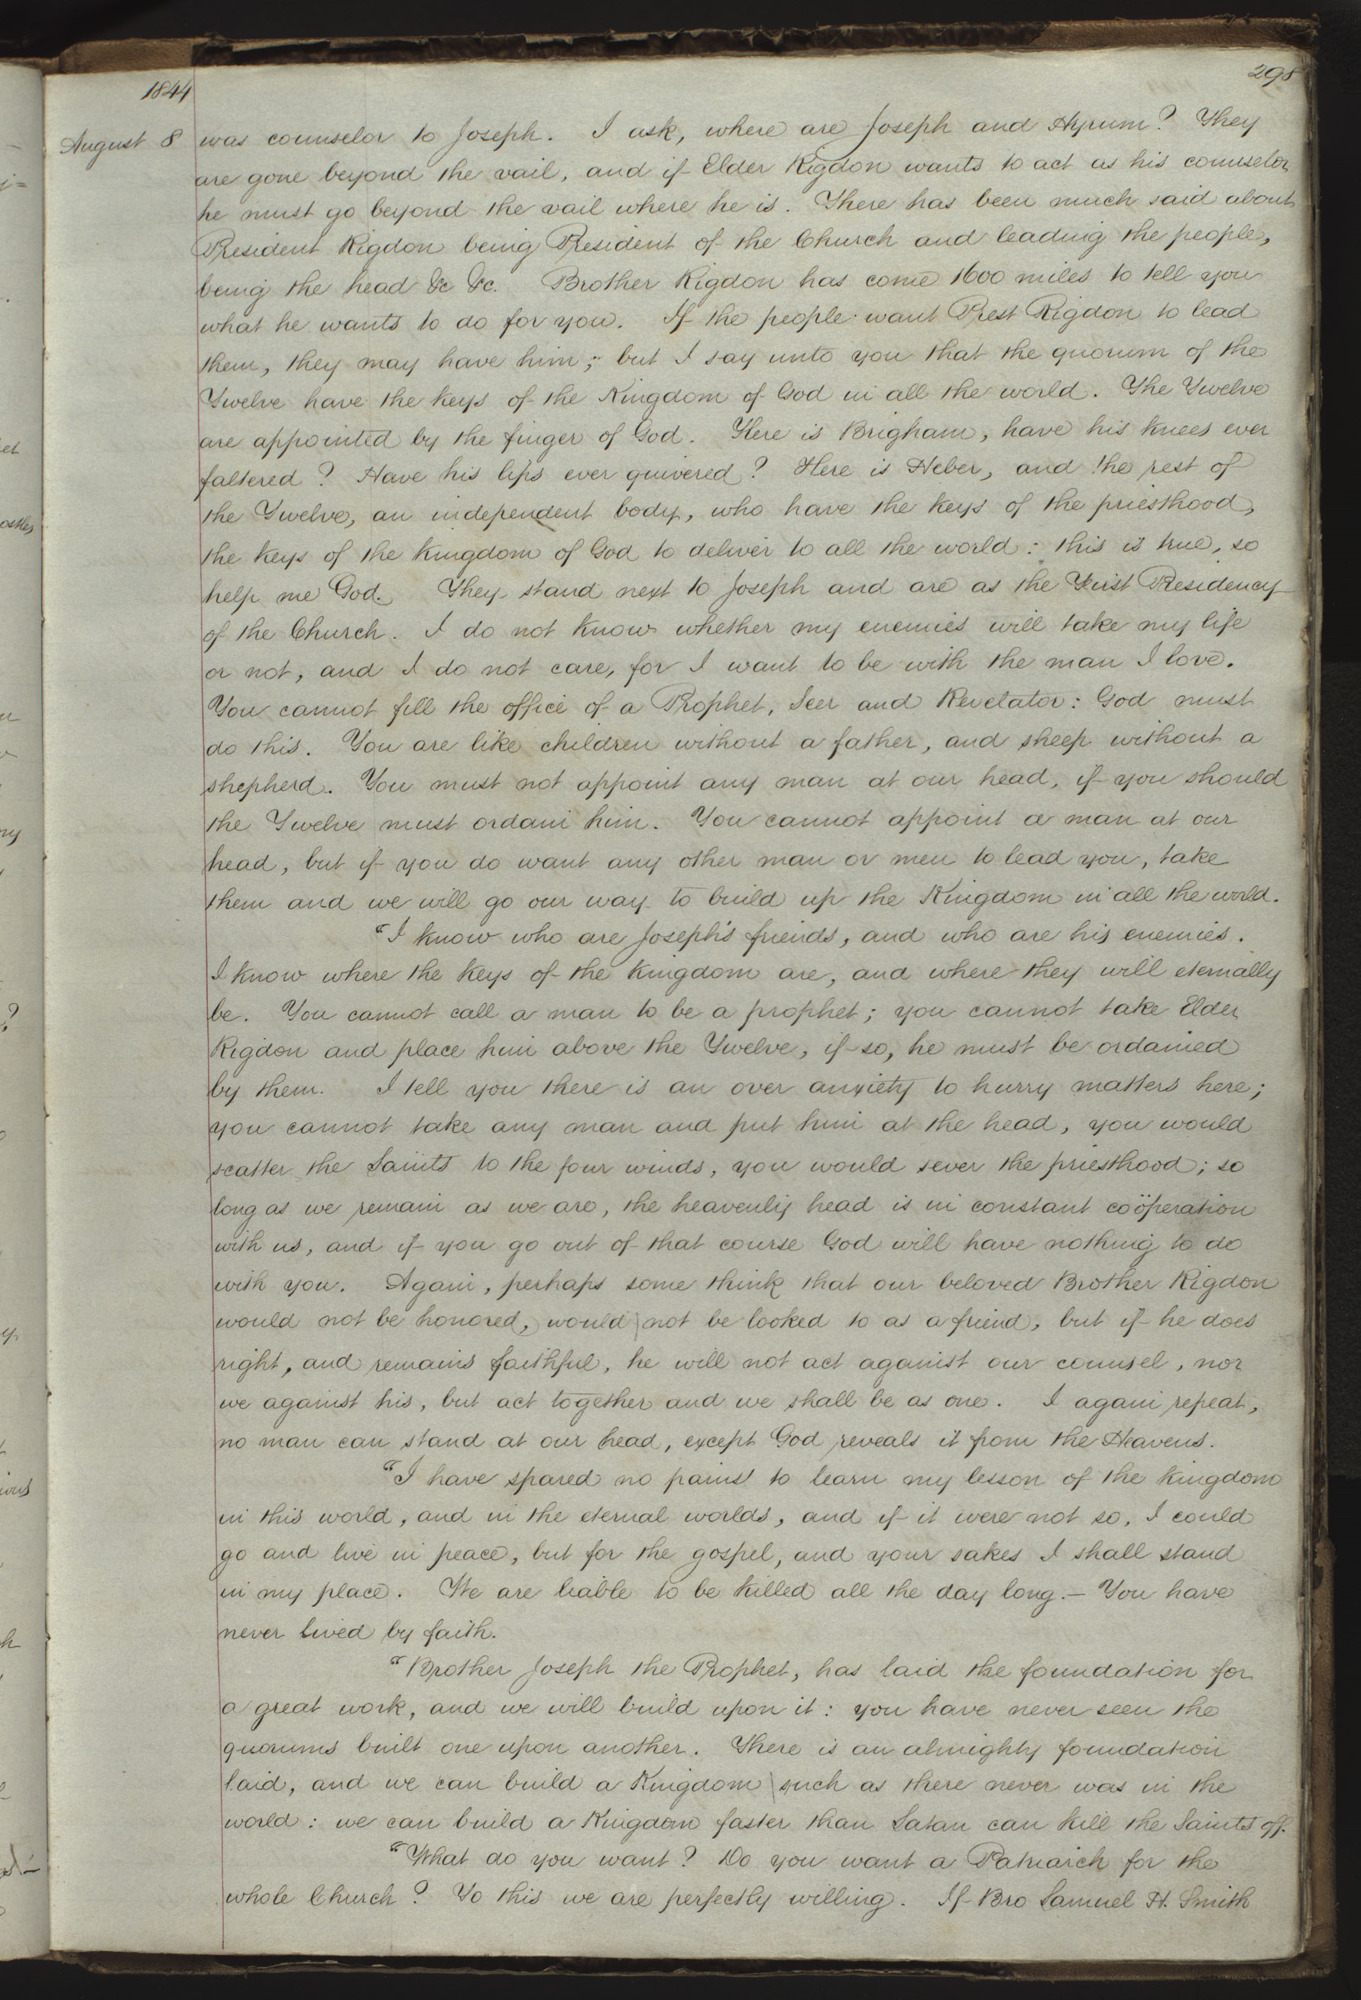 1844
298
August 8 was counselor to Joseph. I ask, where are Joseph and Hyrum? They
are gone beyond the vail, and if Elder Rigdon wants to act as his counselor,
he must go beyond the vail where he is. There has been much said about
President Rigdon being President of the Church and leading the people,
being the head &c &c. Brother Rigdon has come 1600 miles to tell you
what he wants to do for you. If the people want Prest Rigdon to lead
them, they may have him; but I say unto you that the quorum of the
Twelve have the keys of the Kingdom of God in all the world. The Twelve
are appointed by the finger of God. Here is Brigham, have his knees ever
faltered? Have his lips ever quivered? Here is Heber, and the rest of
the Twelve, an independent body, who have the keys of the priesthood,
the keys of the kingdom of God to deliver to all the world: this is true, so
help me God. They stand next to Joseph and are as the First Presidency
of the Church. I do not know whether my enemies will take my life
or not, and I do not care, for I want to be with the man I love.
You cannot fill the office of a Prophet, Seer and Revelator: God must
do this. You are like children without a father, and sheep without a
shepherd. You must not appoint any man at our head, if you should
the Twelve must ordain him. You cannot appoint a man at our
head, but if you do want any other man or men to lead you, take
them and we will go our way to build up the Kingdom in all the world.
"I know who are Joseph's friends, and who are his enemies.
I know where the keys of the kingdom are, and where they will eternally
be. You cannot call a man to be a prophet; you cannot take Elder
Rigdon and place him above the Twelve, if so, he must be ordained
by them. I tell you there is an over anxiety to hurry matters here;
you cannot take any man and put him at the head, you would
scatter the Saints to the four winds, you would sever the priesthood; so
long as we remain as we are, the heavenly head is in constant coöperation
with us, and if you go out of that course God will have nothing to do
with you. Again, perhaps some think that our beloved Brother Rigdon
would not be honored, would not be looked to as a friend, but if he does
right, and remains faithful, he will not act against our counsel, nor
we against his, but act together and we shall be as one. I again repeat,
no man can stand at our head, except God reveals it from the Heavens.
"I have spared no pains to learn my lesson of the kingdom
in this world, and in the eternal worlds, and if it were not so, I could
go and live in peace, but for the gospel, and your sakes I shall stand
in my place. We are liable to be killed all the day long.— You have
never lived by faith.
"Brother Joseph the Prophet, has laid the foundation for
a great work, and we will build upon it: you have never seen the
quorums built one upon another. There is an almighty foundation
laid, and we can build a Kingdom such as there never was in the
world: we can build a Kingdom faster than Satan can kill the Saints off.
"What do you want? Do you want a Patriarch for the
whole Church? To this we are perfectly willing. If Bro Samuel H. Smith